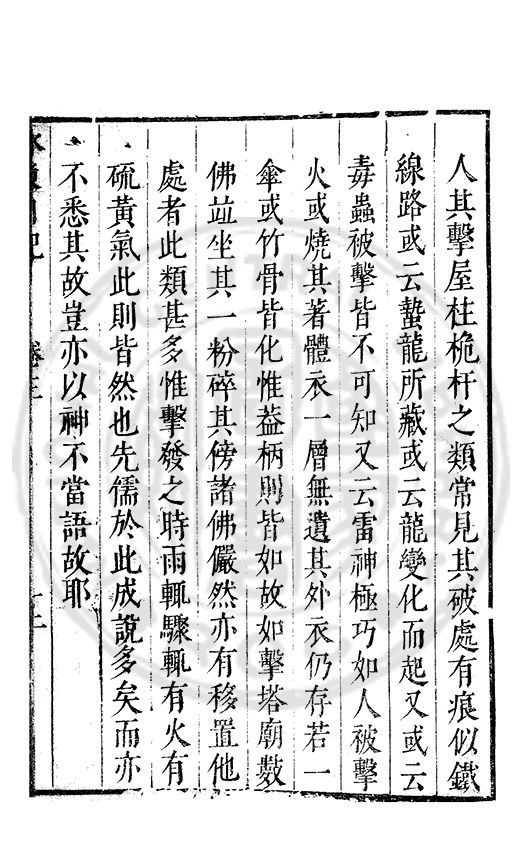 人其擊屋柱桅杆之類常見其破處有痕似鐵
線路或云蟄龍所藏或云龍變化而起又或云
毒蟲被擊皆不可知又云雷神極巧如人被擊
火或燒其著體衣一層無遺其外衣仍存若一
傘或竹骨皆化惟葢柄則皆如故如擊塔廟數
佛竝坐其一粉碎其傍諸佛儼然亦有移置他
處者此類甚多惟擊發之時雨輒驟輒有火有
硫黃氣此則皆然也先儒於此成說多矣而亦
不悉其故豈亦以神不當語故耶
日記 卷三